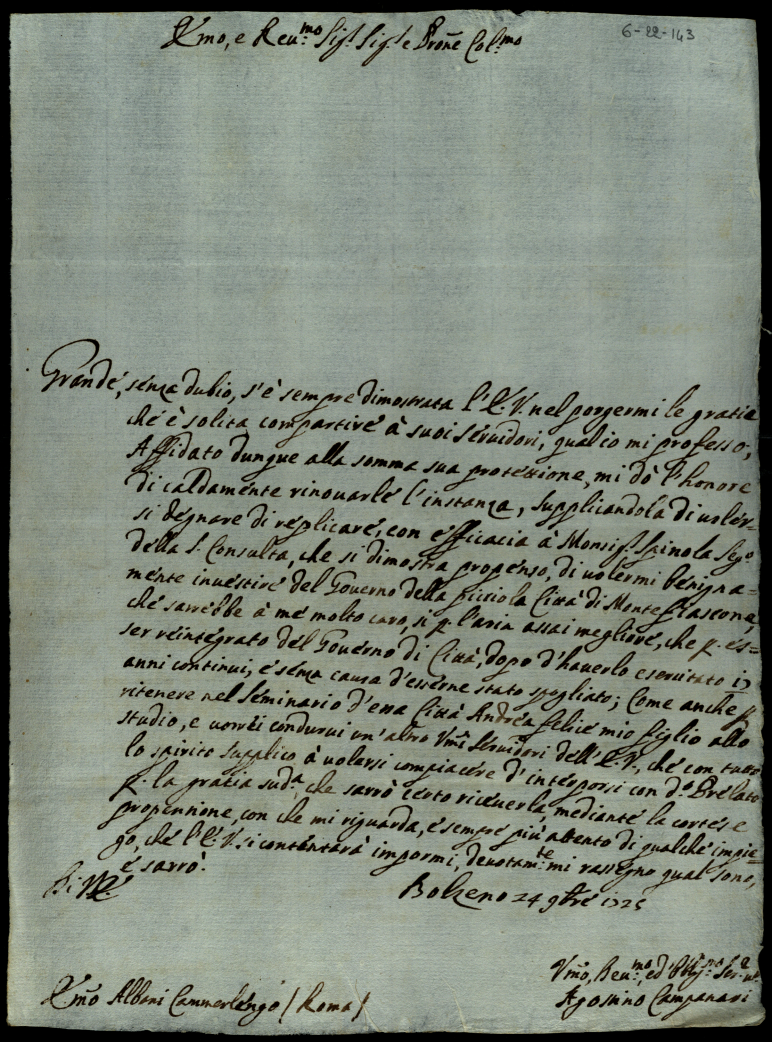 6-22-143
Emo, e Reu.mo Sig.r Sig.r e Prone Col.mo
Grande, senza dubio, s'è sempre dimostrata l'E. V. nel porgermi le gratie
che è solita compartire à suoi seruidori, qual io mi professo;
Affidato dunque alla somma sua protettione, mi dò l'honore
di caldamente rinouarle l'instanza, supplicandola di uoler=
si degnare di replicare, con efficacia à Monsig.r Spinola Seg.o
della S. Consulta, che si dimostra propenso, di uolermi benigna=
mente inuestire del Gouerno della picciola Città di Monte fiascone,
che sarrebbe à me molto caro, sì p. l'aria assai megliore, che p. es=
ser reintegrato del Gouerno di Città, dopo d'hauerlo esercitato 17
anni continui, e senza causa d'esserne stato spogliato; Come anche p.
ritenere nel Seminario d'essa Città Andrea felice mio figlio allo
studio, e uorrei condurui un'altro Vmi Seruidori dell'E. V., che con tutto
lo spirito supplico à uolersi compiacere d'interporsi con d.o Prelato
p. la grazia sud.a, che sarrò certo riceuerla, mediante la cortese
propenzione, con che mi riguarda, e sempre più attento di qualche impie=
go, che l'E. V. si contentarà impormi, deuotam.te mi rassegno qual sono,
e sarrò.
Di V. E.
Bolseno 24 9bre 1725
Vmo, Reu.mo, ed Obblig.mo Ser.re
Agostino Campanari
Emo Albani Cammerlengo (Roma)